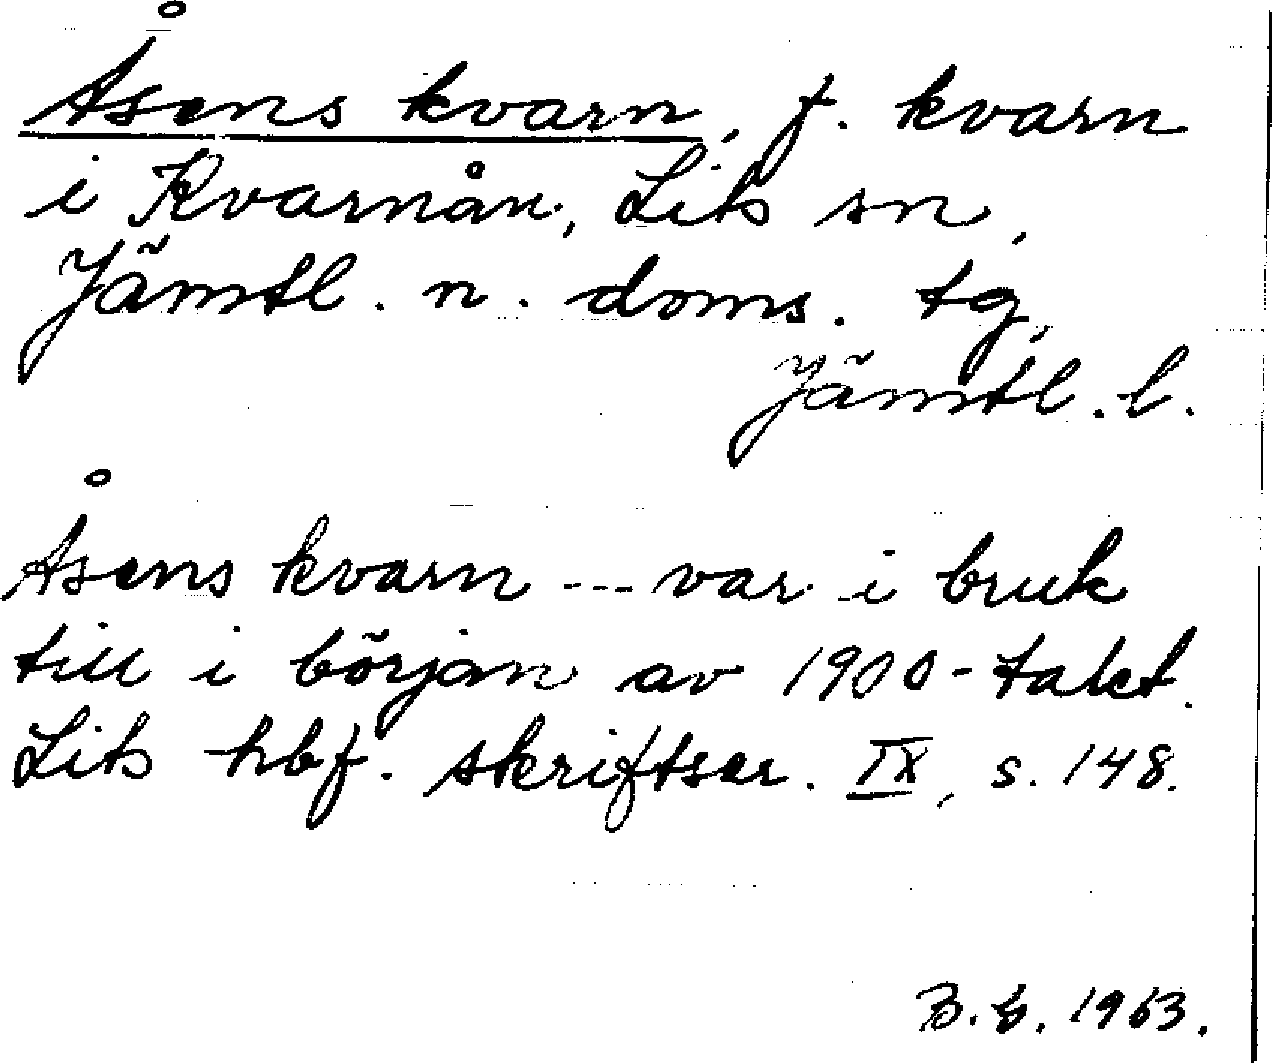 Åsens kvarn, f. kvarn
i Kvarnån, Lits sn,
Jämtl. n. doms. tg,
Jämtl. l.
Åsens kvarn --- var i bruk
till i början av 1900-talet.
Lits hbf. skriftser. IX, s. 148.
B. b. 1963.